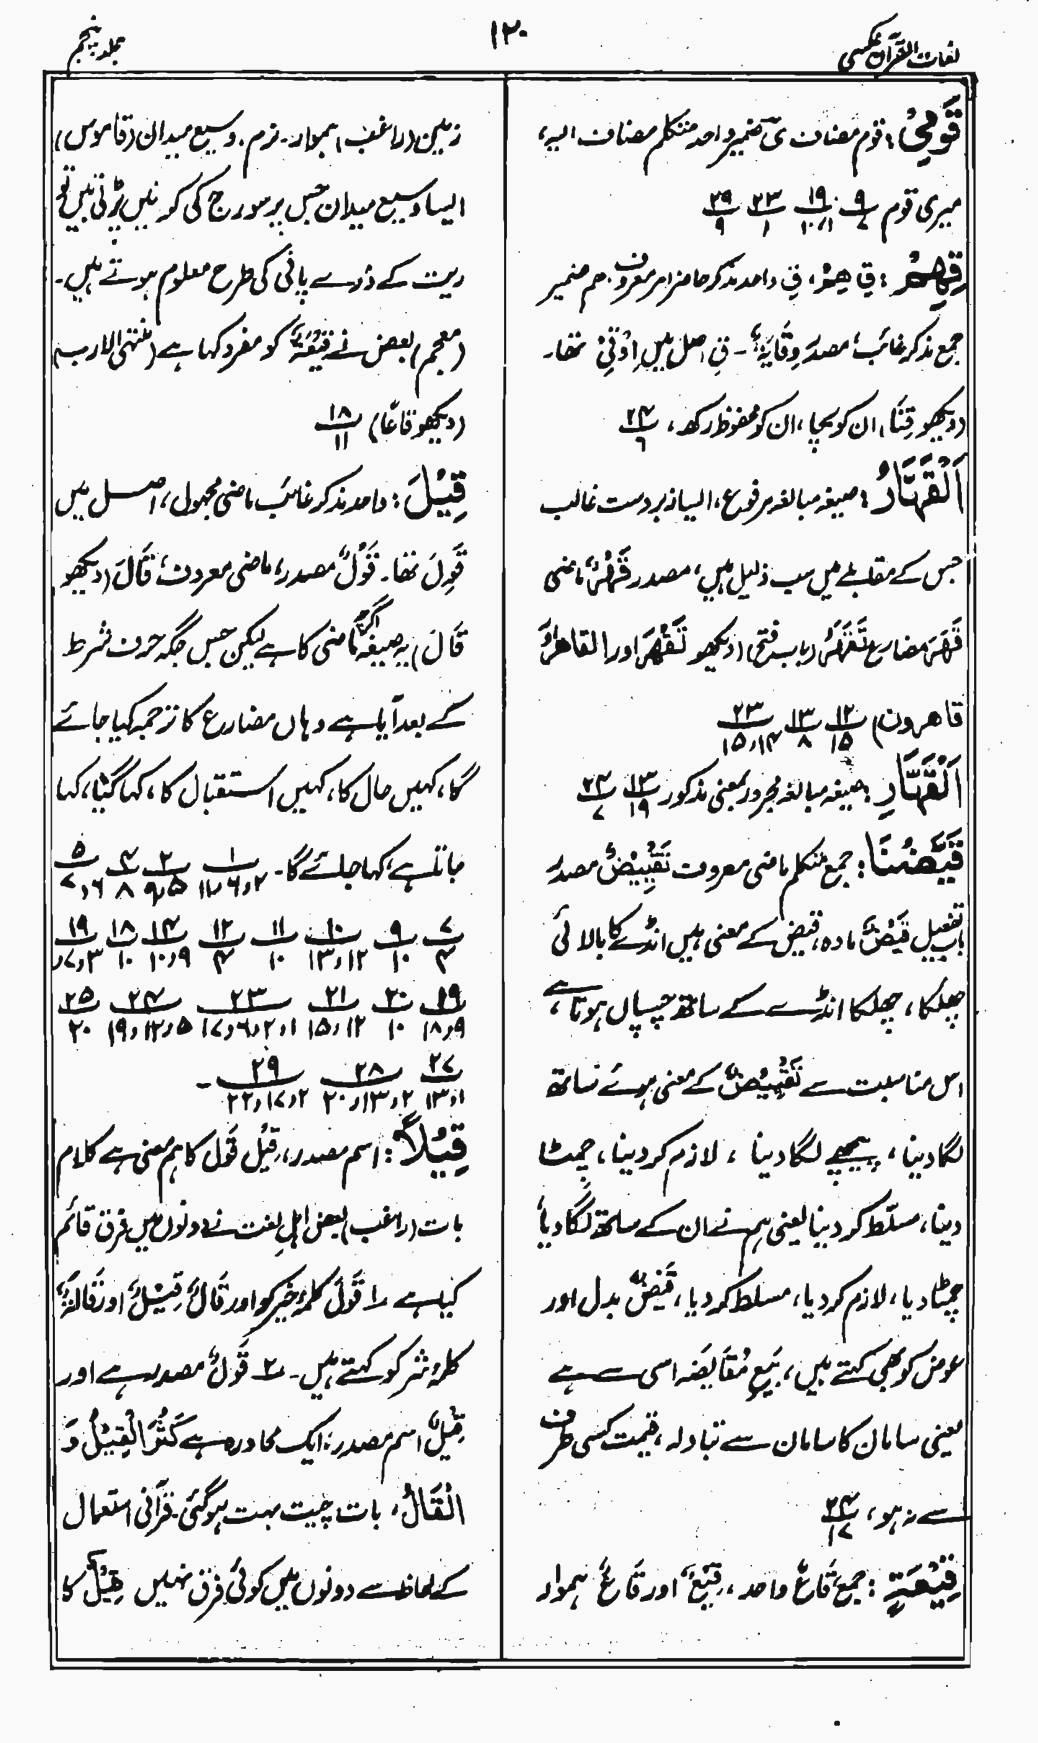 لغات القرآن عکسی
۱۲۰
جلد پنجم
قَوْمِیْ: قوم مضاف یْ ضمیر واحد متکلم مضاف الیہ،
میری قوم ۹/۷ ۱۹/۱۰،۱ ۲۳/۱ ۲۹/۹
قِهِمْ: قِ هِمْ، قِ واحد مذکر حاضر امر معروف. هم ضمیر
جمع مذکر غائب، مصدر وِقَایَةٌ۔ قِ اصل میں اِوْقِیْ تھا۔
(دیکھو قِنَا) ان کو بچا، ان کو محفوظ رکھ، ۲۴/۶
اَلْقَهَّارُ: صیغہ مبالغہ مرفوع، ایسا زبردست غالب
جس کے مقابلے میں سب ذلیل ہیں، مصدر قَهْرٌ، ماضی
قَهَرَ مضارع تَقْهَرُ (باب فتح) (دیکھو تَقْهَرْ اور القاهِرُ
قاهرون) ۱۲/۱۵ ۱۳/۸ ۲۳/۱۵،۱۴
اَلْقَهَّارِ: صیغہ مبالغہ مجرور بمعنی مذکور ۱۳/۱۹ ۲۴/۷
قَیَّضْنَا: جمع متکلم ماضی معروف تَقْیِیْضٌ مصدر
باب تفعیل قَیْضٌ مادہ، قیض کے معنی ہیں انڈے کا بالائی
چھلکا، چھلکا انڈے کے ساتھ چسپاں ہوتا ہے،
اس مناسبت سے تَقْیِیْضٌ کے معنی ہوئے ساتھ
لگا دینا، پیچھے لگا دینا، لازم کر دینا، چمٹا
دینا، مسلّط کر دینا یعنی ہم نے ان کے ساتھ لگا دیا،
چمٹا دیا، لازم کر دیا، مسلط کر دیا، قَیْضٌ بدل اور
عوض کو بھی کہتے ہیں، بَیْعِ مُقَایَضَہ اسی سے ہے
یعنی سامان کا سامان سے تبادلہ، قیمت کسی طرف
سے نہ ہو، ۲۴/۱۷
قِیْعَةٍ: جمع قَاعٌ واحد، قِیْعٌ اور قَاعٌ ہموار
زمین (راغب) ہموار۔ نرم. وسیع میدان (قاموس)
ایسا وسیع میدان جس پر سورج کی کرنیں پڑتی ہیں تو
ریت کے ذرے پانی کی طرح معلوم ہوتے ہیں۔
(معجم) بعض نے قِیْعَةٌ کو مفرد کہا ہے (منتہی الارب)
(دیکھو قاعًا) ۱۸/۱۱
قِیْلَ: واحد مذکر غائب ماضی مجہول، اصل میں
قُوِلَ تھا۔ قَوْلٌ مصدر، ماضی معروف، قَالَ (دیکھو
قَالَ) یہ صیغہ اگرچہ ماضی کا ہے لیکن جس جگہ حرف شرط
کے بعد آیا ہے وہاں مضارع کا ترجمہ کیا جائے
گا، کہیں حال کا، کہیں استقبال کا، کہا گیا، کہا
جاتا ہے، کہا جائے گا۔ ۱/۱۱،۶،۲ ۲/۹،۵ ۴/۸ ۵/۷،۶
۷/۴ ۹/۱۰ ۱۰/۱۳،۱۲ ۱۱/۱۰ ۱۲/۴ ۱۴/۱۰،۹ ۱۸/۱۰ ۱۹/۷،۳
۱۹/۱۸،۹ ۲۰/۱۰ ۲۱/۱۵،۱۲ ۲۳/۱۷،۶،۲،۱ ۲۴/۱۹،۱۲،۵ ۲۵/۲۰
۲۷/۱۳،۱ ۲۸/۲۰،۱۳،۲ ۲۹/۲۲،۱۷،۲ ۔
قِیْلًا: اسم مصدر، قِیْل قَول کا ہم معنی ہے کلام
بات (راغب) بعض اہل لغت نے دونوں میں فرق قائم
کیا ہے ۱ قَوْلٌ کلمۂ خیر کو اور قَالٌ، قِیْلٌ اور قَالَةٌ،
کلمۂ شر کو کہتے ہیں۔ ۲ قَوْلٌ مصدر ہے اور
قِیْلٌ اسم مصدر، ایک محاورہ ہے کَثُرَ الْقِیْلُ وَ
الْقَالُ، بات چیت بہت ہو گئی۔ قرآنی استعمال
کے لحاظ سے دونوں میں کوئی فرق نہیں قِیْلٌ کا